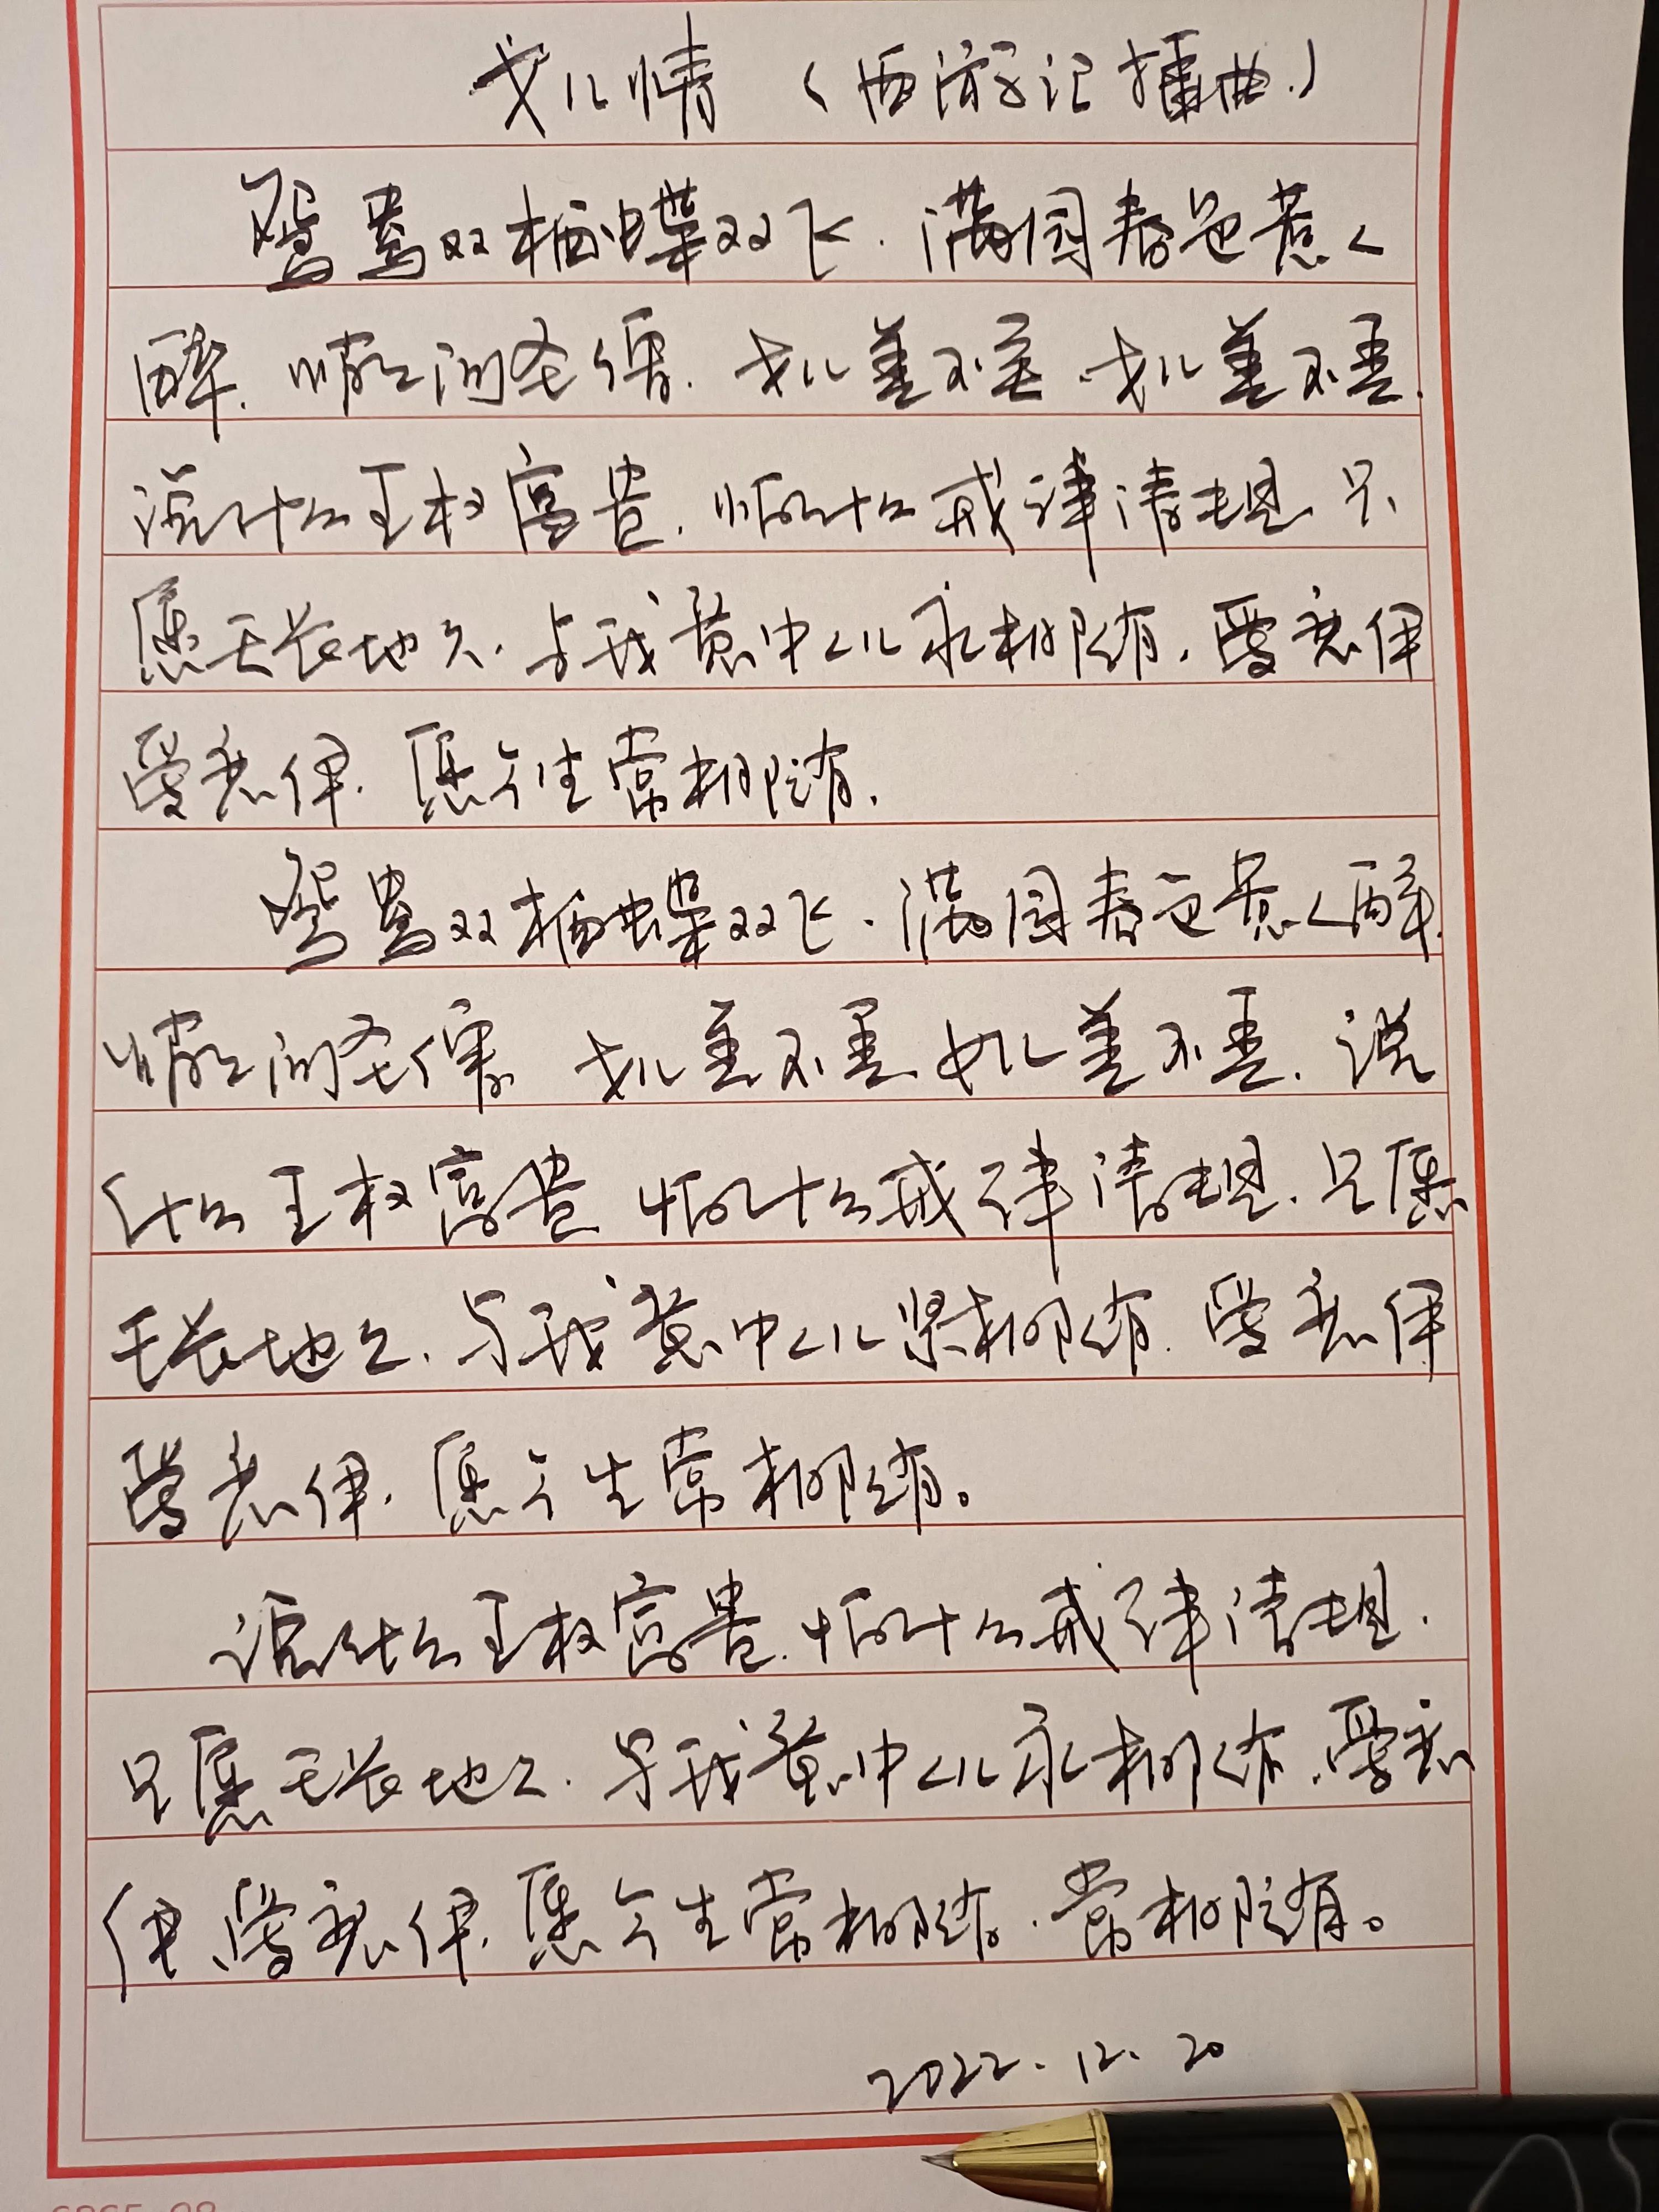 女儿情（西游记插曲）
鸳鸯双栖蝶双飞．满园春色惹人
醉．悄悄问圣僧．女儿美不美．女儿美不美．
说什么王权富贵．怕什么戒律清规 只
愿天长地久．与我意中人儿永相随．爱恋伊
爱恋伊．愿今生常相随．
鸳鸯双栖蝶双飞．满园春色惹人醉．
悄悄问圣僧 女儿美不美 女儿美不美．说
什么王权富贵 怕什么戒律清规．只愿
天长地久．与我意中人儿紧相随．爱恋伊
爱恋伊．愿今生常相随。
说什么王权富贵．怕什么戒律清规．
只愿天长地久．与我意中人儿永相随．爱恋
伊．爱恋伊．愿今生常相随．常相随。
2022.12.20